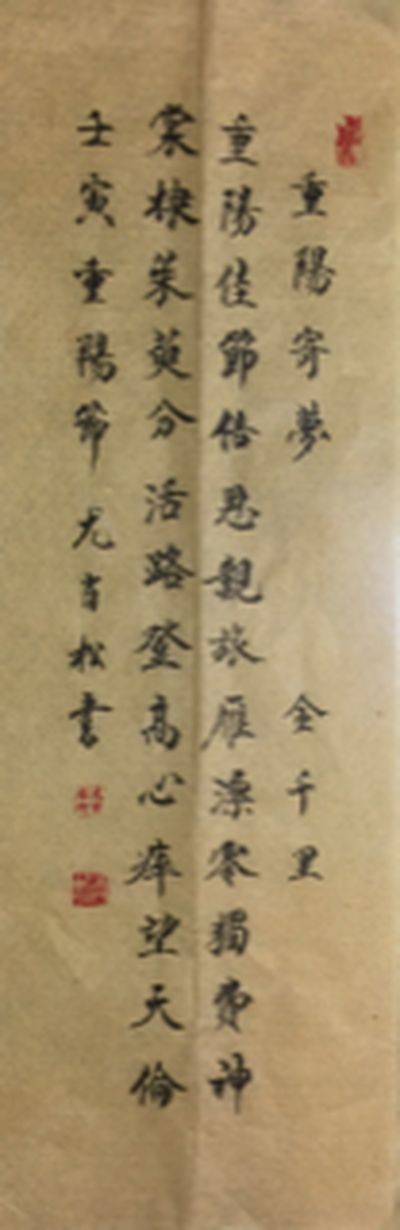 重陽寄夢 金千里
重陽佳節倍思親旅雁漂零獨費神
棠棣茱萸分活路登高心瘁望天倫
壬寅重陽節尤吉松書